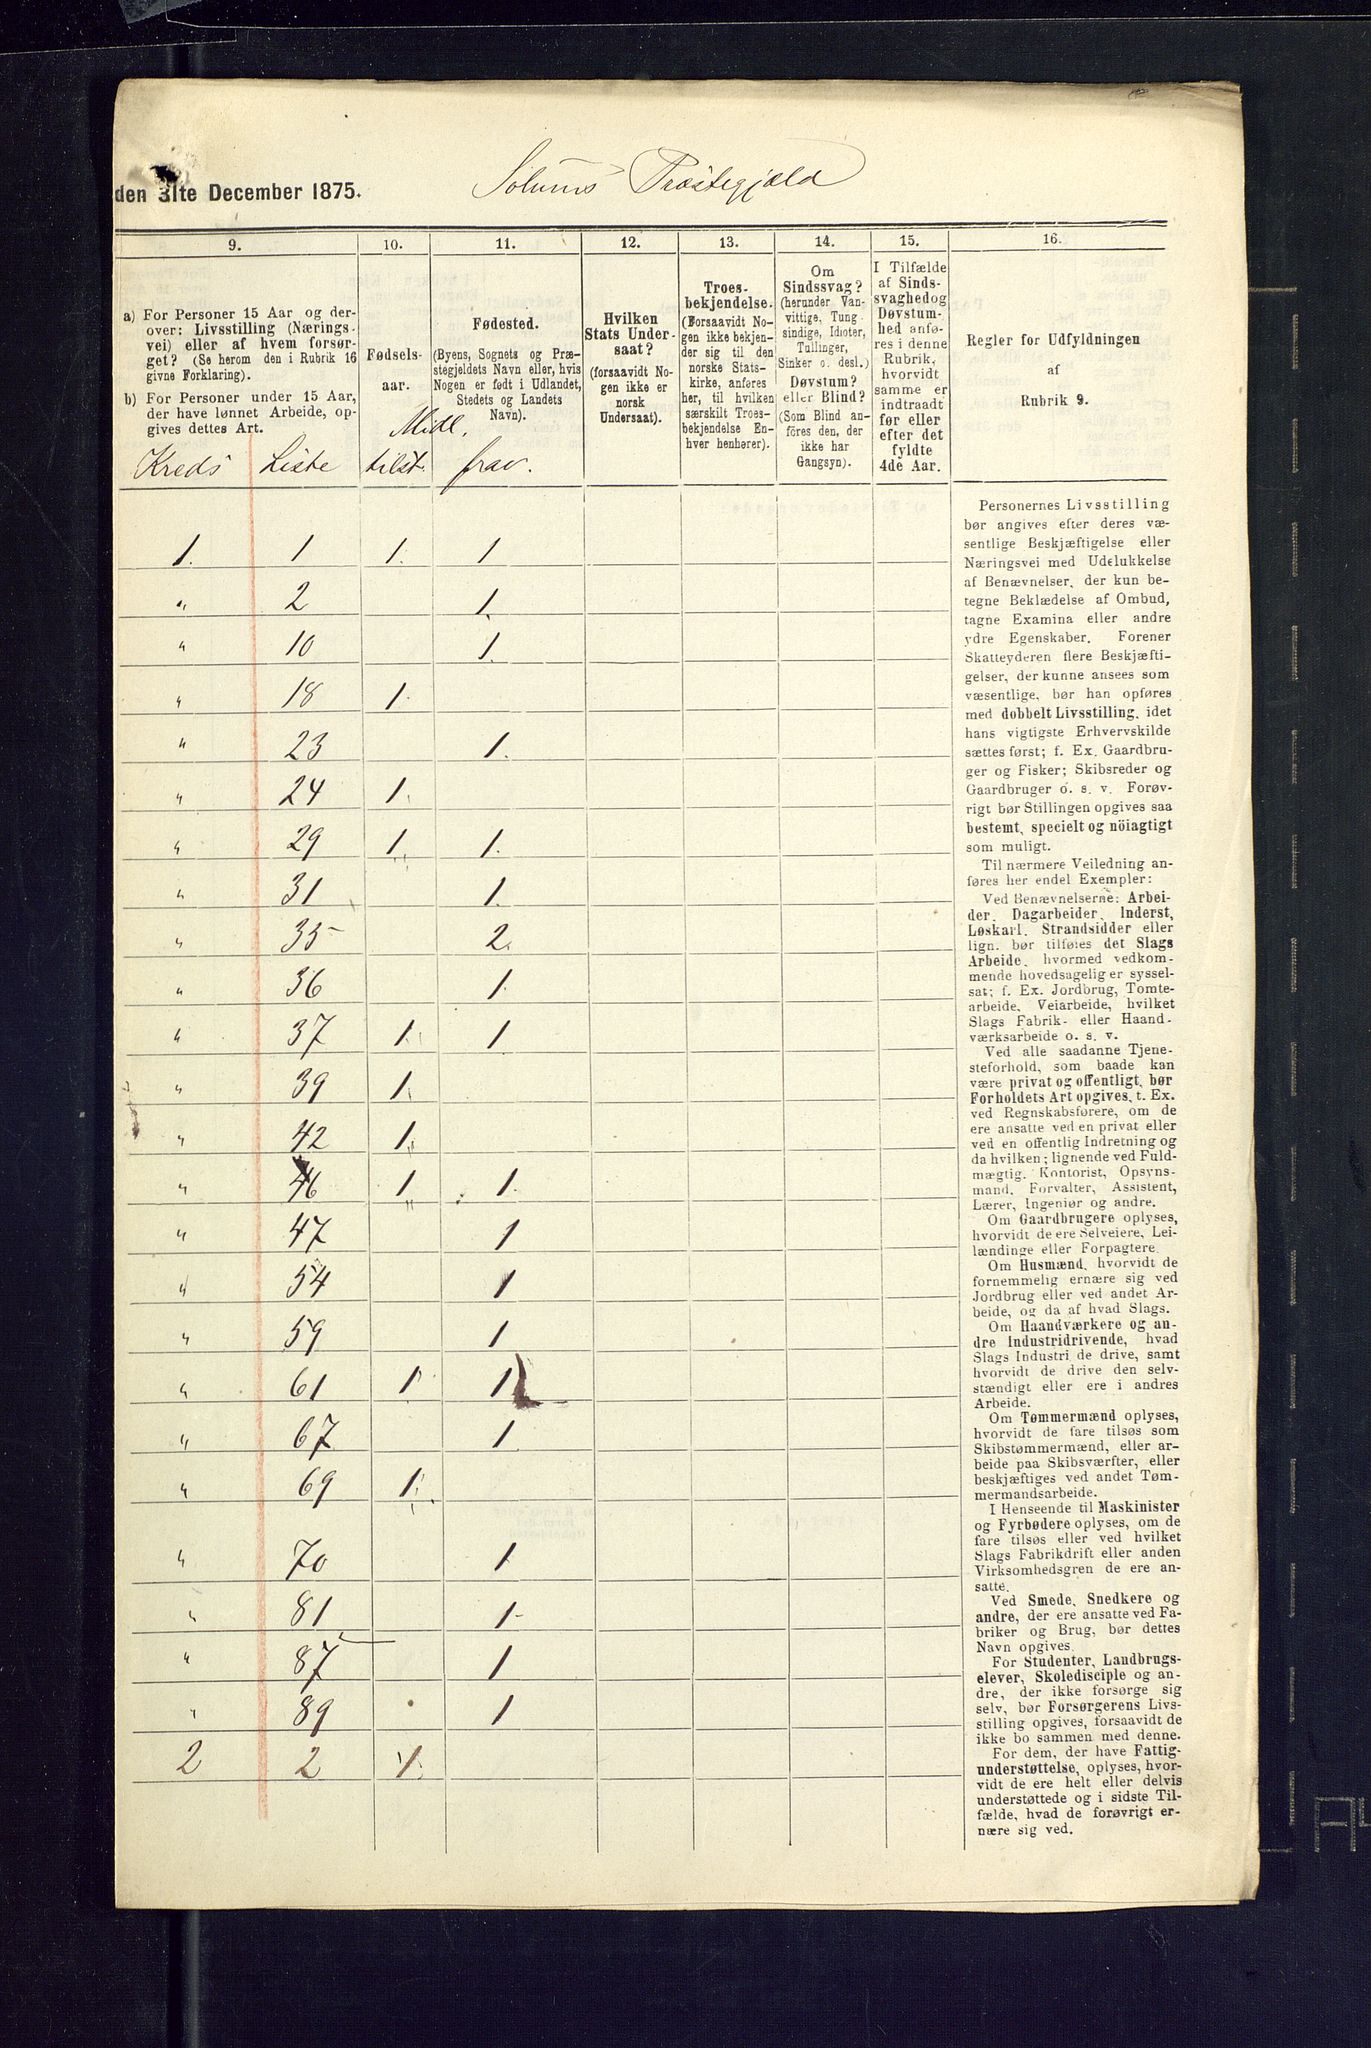 Solums Præstegjæld
den 31te December 1875.
9. 10. 11. 12. 13. 14. 15. 16.
a) For Personer 15 Aar og der-
over: Livsstilling (Nærings-
vei) eller af hvem forsør-
get? (Se herom den i Rubrik 16
givne Forklaring).
b) For Personer under 15 Aar,
der have lønnet Arbeide, op-
gives dettes Art.
Fødsels-
aar.
Fødested.
(Byens, Sognets og Præ-
stegjeldets Navn eller, hvis
Nogen er født i Udlandet,
Stedets og Landets
Navn).
Hvilken
Stats Under-
saat?
(forsaavidt No-
gen ikke er
norsk
Undersaat).
Troes-
bekjendelse.
(Forsaavidt No-
gen ikke bekjen-
der sig til den
norske Stats-
kirke, anføres
her, til hvilken
særskilt Troes-
bekjendelse En-
hver henhører).
Om
Sindssvag?
(herunder Van-
vittige, Tung-
sindige, Idioter,
Tullinger,
Sinker o. desl.)
Døvstum?
eller Blind?
(Som Blind an-
föres den, der
ikke har
Gangsyn).
I Tilfælde
af Sinds-
svaghed og
Døvstum-
hed anfø-
res i denne
Rubrik,
hvorvidt
samme er
indtraadt
før eller
efter det
fyldte
4de Aar.
Regler for Udfyldningen
af
Rubrik 9.
Midl.
Kreds Liste tilst. frav.
1. 1 1. 1
" 2 1.
" 10 1.
" 18 1.
" 23 1.
" 24 1.
" 29 1. 1.
" 31 1.
" 35 2.
" 36 1.
" 37 1. 1
" 39 1.
" 42 1.
" 46 1 1.
" 47 1
" 54 1
" 59 1
" 61 1 1
" 67 1
" 69 1.
" 70 1
" 81 1
" 87 1
" 89 1
2 2 1.
Personernes Livsstilling
bør angives efter deres væ-
sentlige Beskjæftigelse eller
Næringsvei med Udelukkelse
af Benævnelser, der kun be-
tegne Beklædelse af Ombud,
tagne Examina eller andre
ydre Egenskaber. Forener
Skatteyderen flere Beskjæfti-
gelser, der kunne ansees som
væsentlige, bør han opføres
med dobbelt Livsstilling, idet
hans vigtigste Erhvervskilde
sættes først; f. Ex. Gaardbru-
ger og Fisker; Skibsreder og
Gaardbruger o. s. v. Forøv-
rigt bør Stillingen opgives saa
bestemt, specielt og nöiagtigt
som muligt.
Til nærmere Veiledning an-
føres her endel Exempler:
Ved Benævnelserne: Arbei-
der, Dagarbeider, Inderst,
Løskarl, Strandsidder eller
lign. bør tilføies det Slags
Arbeide, hvormed vedkom-
mende hovedsagelig er syssel-
sat; f. Ex. Jordbrug, Tomte-
arbeide, Veiarbeide, hvilket
Slags Fabrik- eller Haand-
værksarbeide o. s. v.
Ved alle saadanne Tjene-
steforhold, som baade kan
være privat og offentligt, bør
Forholdets Art opgives, t. Ex.
ved Regnskabsførere, om de
ere ansatte ved en privat eller
ved en offentlig Indretning og
da hvilken; lignende ved Fuld-
mægtig, Kontorist, Opsyns-
mand, Forvalter, Assistent,
Lærer, Ingeniør og andre.
Om Gaardbrugere oplyses,
hvorvidt de ere Selveiere, Lei-
lændinge eller Forpagtere.
Om Husmænd, hvorvidt de
fornemmelig ernære sig ved
Jordbrug eller ved andet Ar-
beide, og da af hvad Slags.
Om Haandværkere og an-
dre Industridrivende, hvad
Slags Industri de drive, samt
hvorvidt de drive den selv-
stændigt eller ere i andres
Arbeide.
Om Tømmermænd oplyses,
hvorvidt de fare tilsøs som
Skibstømmermænd, eller ar-
beide paa Skibsværfter, eller
beskjæftiges ved andet Tøm-
mermandsarbeide.
I Henseende til Maskinister
og Fyrbødere oplyses, om de
fare tilsøs eller ved hvilket
Slags Fabrikdrift eller anden
Virksomhedsgren de ere an-
satte.
Ved Smede, Snedkere og
andre, der ere ansatte ved Fa-
briker og Brug, bør dettes
Navn opgives.
For Studenter, Landbrugs-
elever, Skoledisciple og an-
dre, der ikke forsørge sig
selv, bør Forsørgerens Livs-
stilling opgives, forsaavidt de
ikke bo sammen med denne.
For dem, der have Fattig-
understøttelse, oplyses, hvor-
vidt de ere helt eller delvis
understøttede og i sidste Til-
fælde, hvad de forøvrigt er-
nære sig ved.
A4